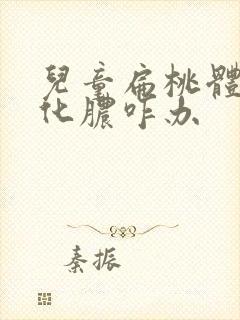 兒童扁桃體
化膿咋办
秦振